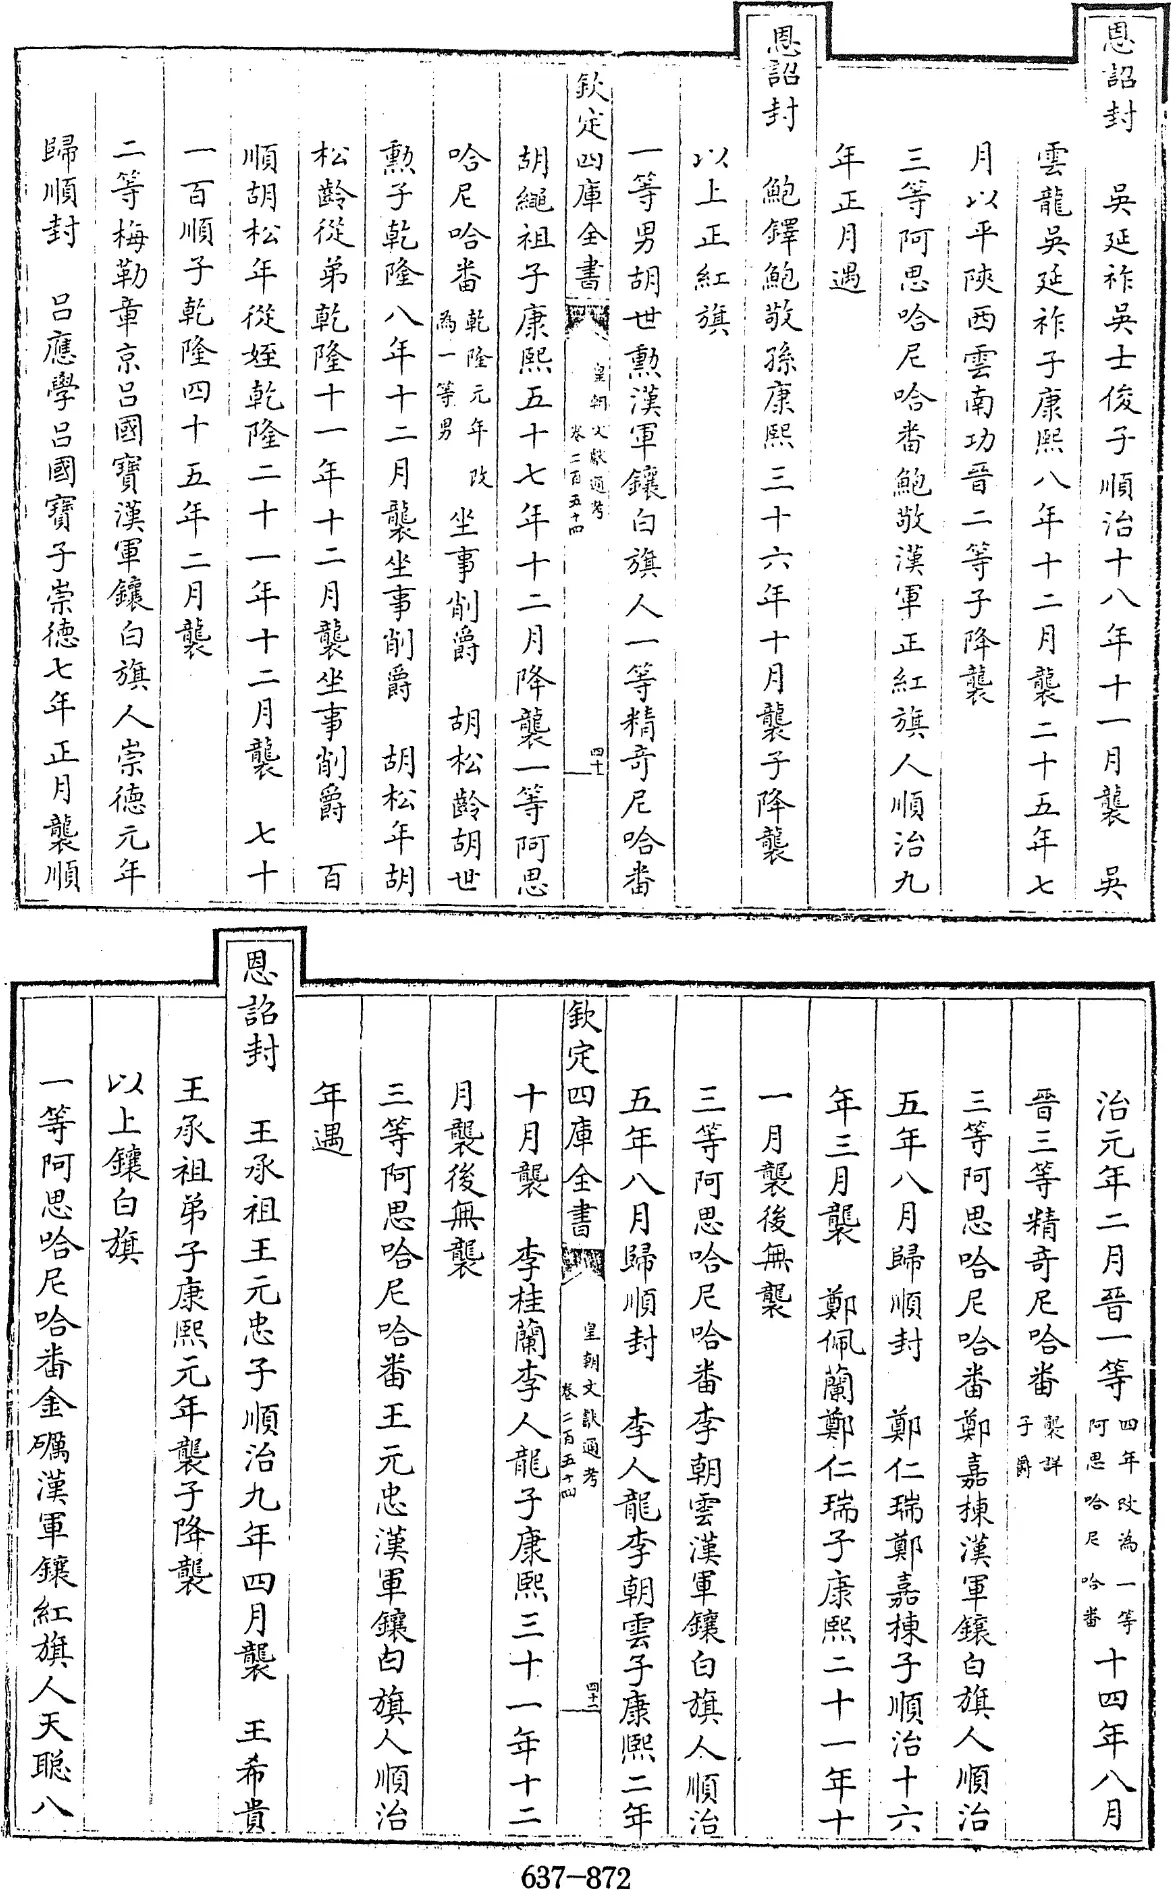 恩詔封　吳延祚吳士俊子順治十八年十一月襲　吳
雲龍吳延祚子康熙八年十二月襲二十五年七
月以平陝西雲南功晉二等子降襲
三等阿思哈尼哈番鮑敬漢軍正紅旗人順治九
年正月遇
恩詔封　鮑鐸鮑敬孫康熙三十六年十月襲子降襲
以上正紅旗
一等男胡世勲漢軍鑲白旗人一等精奇尼哈番
欽定四庫全書　皇朝文獻通考
卷二百五十四　四十一
胡繩祖子康熙五十七年十二月降襲一等阿思
哈尼哈番乾隆元年改
為一等男坐事削爵　胡松齡胡世
勲子乾隆八年十二月襲坐事削爵　胡松年胡
松齡從弟乾隆十一年十二月襲坐事削爵　百
順胡松年從姪乾隆二十一年十二月襲　七十
一百順子乾隆四十五年二月襲
二等梅勒章京呂國寶漢軍鑲白旗人崇德元年
歸順封　呂應學呂國寶子崇德七年正月襲順
治元年二月晉一等四年改為一等
阿思哈尼哈番十四年八月
晉三等精奇尼哈番襲詳
子爵
三等阿思哈尼哈番鄭嘉棟漢軍鑲白旗人順治
五年八月歸順封　鄭仁瑞鄭嘉棟子順治十六
年三月襲　鄭佩蘭鄭仁瑞子康熙二十一年十
一月襲後無襲
三等阿思哈尼哈番李朝雲漢軍鑲白旗人順治
五年八月歸順封　李人龍李朝雲子康熙二年
欽定四庫全書　皇朝文獻通考
卷二百五十四　四十二
十月襲　李桂蘭李人龍子康熙三十一年十二
月襲後無襲
三等阿思哈尼哈番王元忠漢軍鑲白旗人順治
年遇
恩詔封　王承祖王元忠子順治九年四月襲　王希貴
王承祖弟子康熙元年襲子降襲
以上鑲白旗
一等阿思哈尼哈番金礪漢軍鑲紅旗人天聰八
637-872